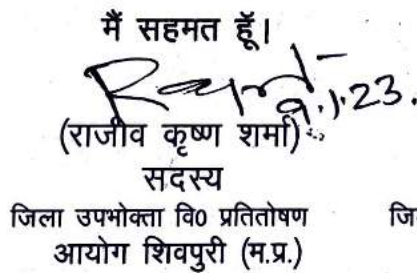 मैं सहमत हूॅं।
9.1.23.
(राजीव कृष्ण शर्मा)
सदस्य
जिला उपभोक्ता वि0 प्रतितोषण जि
आयोग शिवपुरी (म.प्र.)